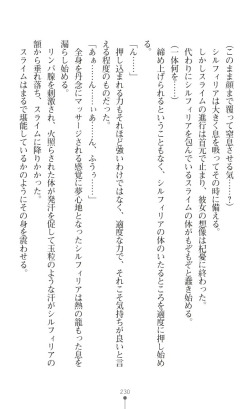 （このまま顔まで覆って窒息させる気……？）
シルフィリアは大きく息を吸ってその時に備える。
しかしスライムの進行は首元で止まり、彼女の想像は杞憂に終わった。
代わりにシルフィリアを包んでいるスライムの体がもぞもぞと蠢き始める。
（一体何を……）
締め上げられるということもなく、シルフィリアの体のいたるところを適度に押し始め
る。
「ん……」
押し込まれる力もそれほど強いわけではなく、適度な力で、それこそ気持ちが良いと言
える程度のものだった。
「あぁ……ん……ぃあ……ん、ふうぅ……」
全身を丹念にマッサージされる感覚に夢心地となったシルフィリアは熱の籠もった息を
漏らし始める。
リンパ腺を刺激され、火照らされた体が発汗を促して玉粒のような汗がシルフィリアの
額から垂れ落ち、スライムに降りかかった。
スライムはまるで堪能しているかのようにその身を震わせる。
230